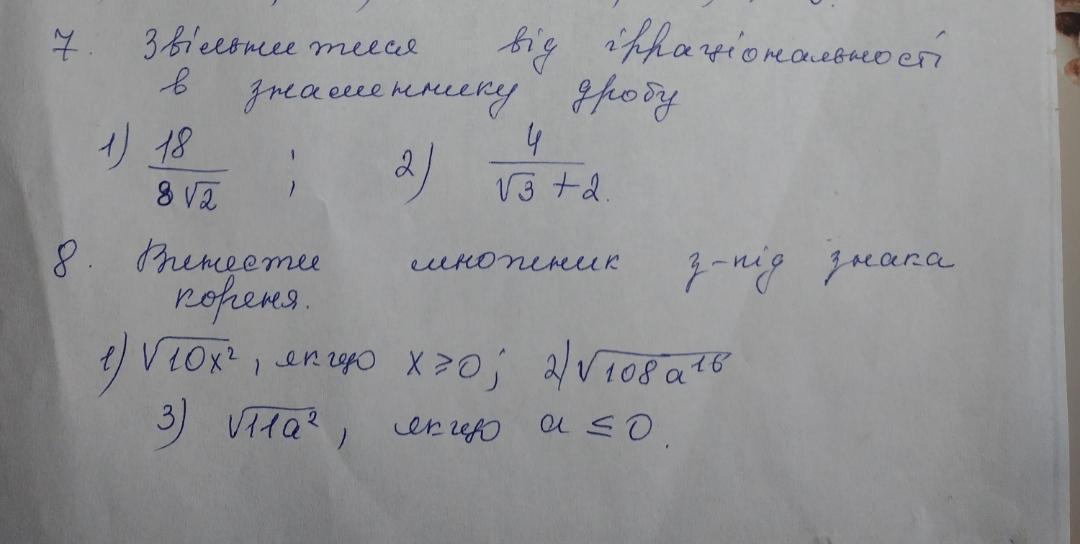 7. Звільнитися від ірраціональності
в знаменнику дробу
1) 18/(8√2) ; 2) 4/(√3 + 2).
8. Винести множник з-під знака
кореня.
1) √(10x²), якщо x ≥ 0; 2) √(108a¹⁶)
3) √(11a²), якщо a ≤ 0.